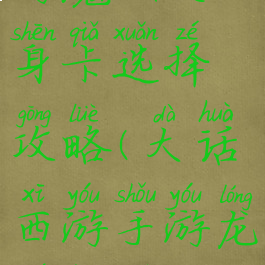 shēn qiǎ xuǎn zé
身卡选择
gōng lüè dà huà
攻略(大话
xī yóu shǒu yóu lóng
西游手游龙